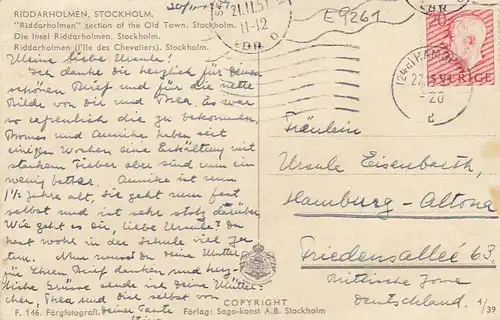 RIDDARHOLMEN, STOCKHOLM.
"Riddarholmen" section of the Old Town. Stockholm.
Die Insel Riddarholmen. Stockholm.
Riddarholmen (l'Ile des Chevaliers). Stockholm.
21.11.51
11-12
E9261
20
SVERIGE
(24a) HAMB
-20
d
Meine liebe Ursula!
Ich danke dir herzlich für den
schönen Brief und für die nette
Bilde von Dir und Thea. Es war
so erfreulich die zu bekommen.
und Annike haben seit
einigen Wochen eine Erkältung mit
starkem Fieber aber sind nun ein
wenig better. Annike ist nun
1½ Jahre alt, sie geht nun fast
selbst und ist sehr stolz darüber.
Wie geht es dir, liebe Ursula? Du
hast wohl in der Schule viel zu
tun. Nun musst Du deine Mutter
für Ihren Brief danken und herz-
liche Grüsse sende ich deine Mütter-
chen, Thea und Dich selbst von
deiner Tante
Fräulein
Ursula Eisenbarth,
Hamburg-Altona
Friedensallée 63,
Brittische Zone
Deutschland.
4/39
COPYRIGHT
F. 146. Färgfotografi.
Förlag: Sago-konst A.B. Stockholm